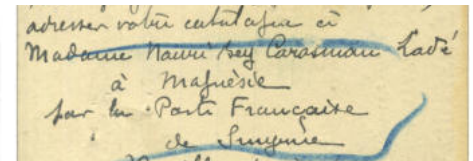 adresser votre catalogue à
Madame Nauri bey Carasman Zadé
à Magnésie
par la Poste Française
de Smyrne